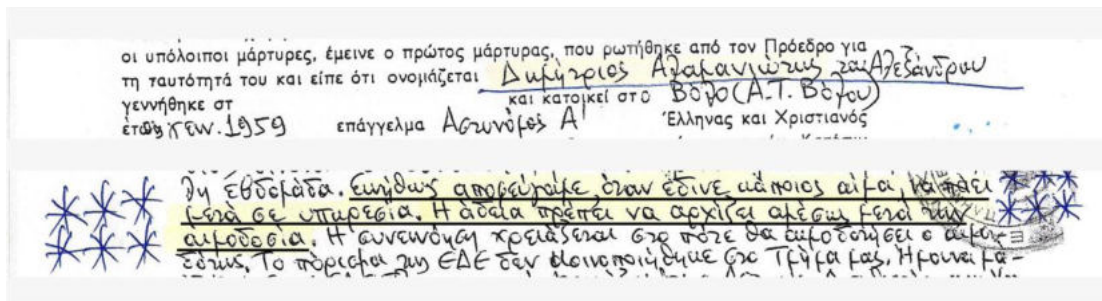 οι υπόλοιποι μάρτυρες, έμεινε ο πρώτος μάρτυρας, που ρωτήθηκε από τον Πρόεδρο για
τη ταυτότητά του και είπε ότι ονομάζεται Δημήτριος Αλαμανιώτης του Αλεξάνδρου
γεννήθηκε στ και κατοικεί στο Βόλο (Α.Τ. Βόλου)
έτος γεν. 1959 επάγγελμα Αστυνόμος Α' Έλληνας και Χριστιανός
λη εβδομάδα. Συνήθως αποφεύγαμε, όταν έδινε κάποιος αίμα, να πάει
μετά σε υπηρεσία. Η άδεια πρέπει να αρχίζει αμέσως μετά την
αιμοδοσία. Η συνεννόηση χρειάζεται στο πότε θα αιμοδοτήσει ο αιμο-
δότης. Το πόρισμα της ΕΔΕ δεν κοινοποιήθηκε στο Τμήμα μας. Ήμουνα